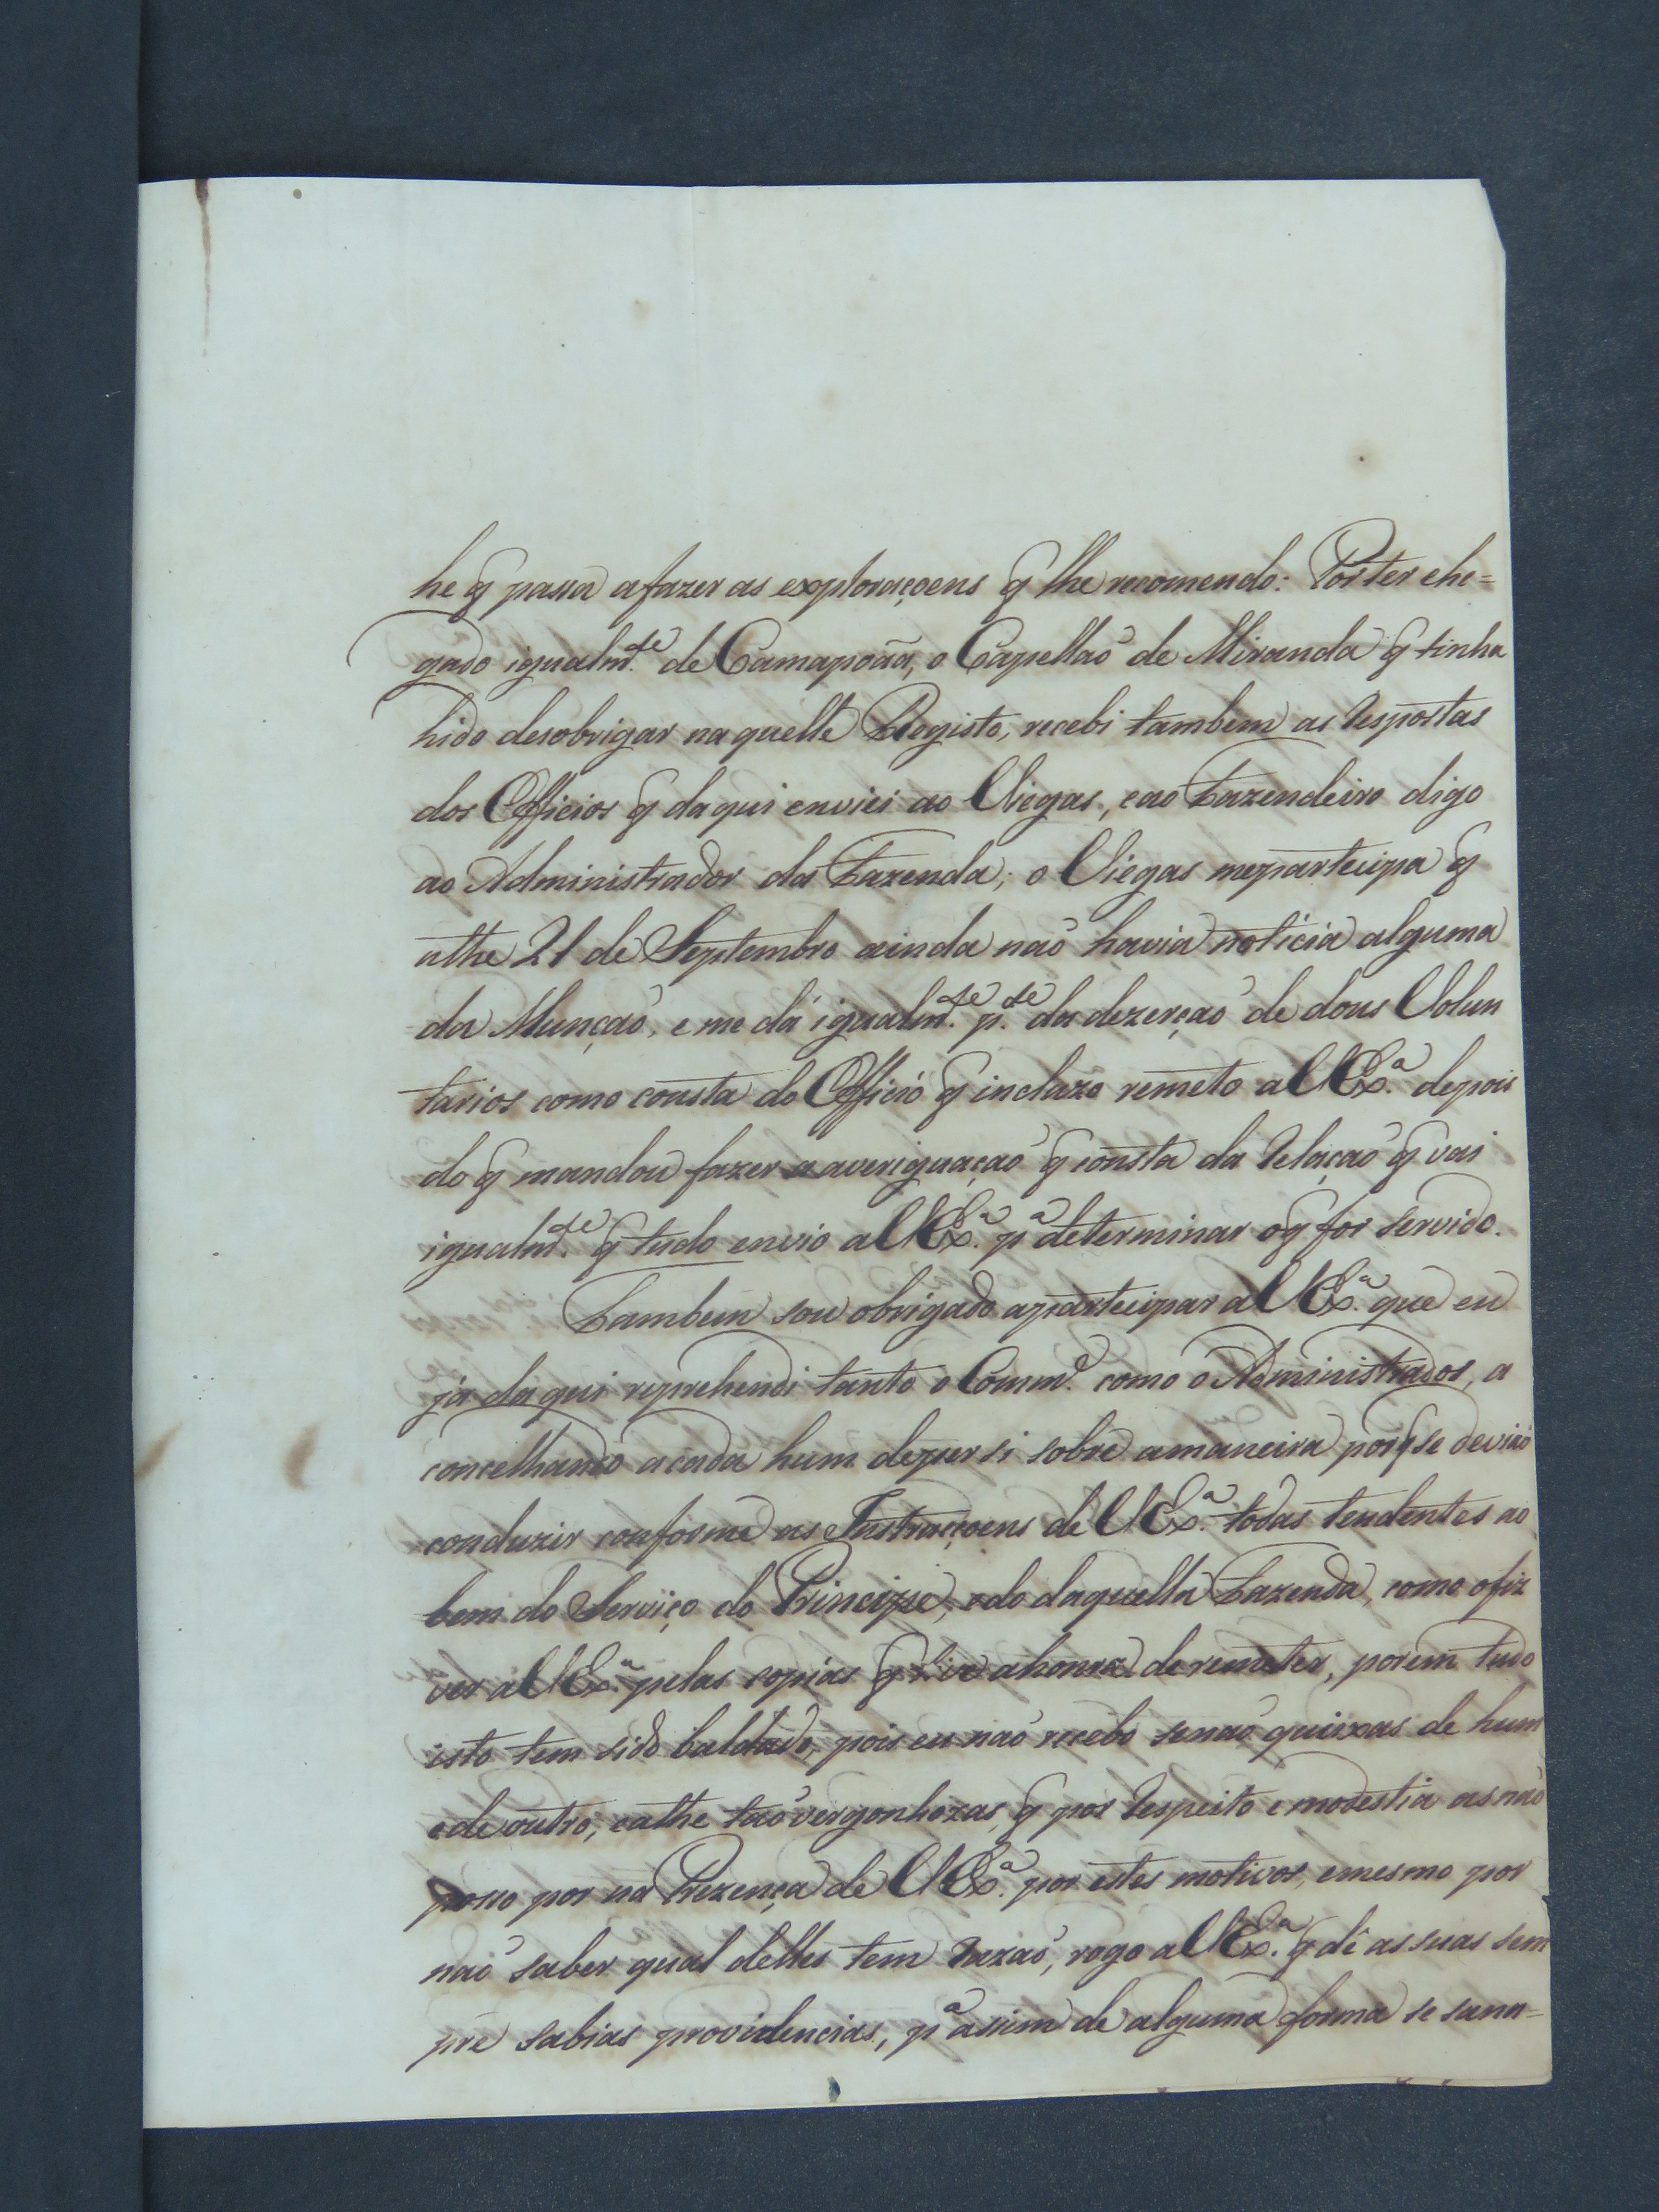 he q̃ passa a fazer as exploraçoens q̃ lhe recomendo: Por ter che=
gado igualm.te de Camapoãa, o Capellaõ de Miranda q̃ tinha
hido desobrigar naquelle Registo, recebi tambem as Respostas
dos Officios q̃ daqui enviei ao Viegas, e ao Fazendeiro digo
ao Administrador da Fazenda; o Viegas me partecipa q̃
athe 21 de Septembro ainda naõ havia noticia alguma
da Munçaõ, e me dá igualm.te p.te da dezerçaõ de dous Volun
tarios como consta do Officio q̃ incluzo remeto a V Ex.ª depois
do q̃ mandou fazer a averiguaçaõ q̃ consta da Relaçaõ q̃ vai
igualm.te q̃ tudo envio a V Ex.ª p.ª determinar o q̃ for servido.
Tambem sou obrigado apartecipar a V Ex.ª que eu
já daqui reprehendi tanto o Comm.e como o Administrador, a
concelhando a cada hum de per si sobre a maneira porq̃ se deviaõ
conduzir conforme as Instrucçoens de V Ex.ª todas tendentes ao
bem do Serviço do Principe, e do daquella Fazenda, como o fiz
ver a V Ex.ª pelas copias q̃ tive a honra de remeter, porem tudo
isto tem sido baldado, pois eu naõ recebo senaõ queixas de hum
e de outro, e athe taõ vergonhozas, q̃ por Respeito e modestia as naõ
posso por na Prezença de V Ex.ª por estes motivos, e mesmo por
naõ saber qual delles tem Razaõ, rogo a V Ex.ª q̃ dê as suas sem
pre sabias providencias, p.ª assim de alguma forma se sana=